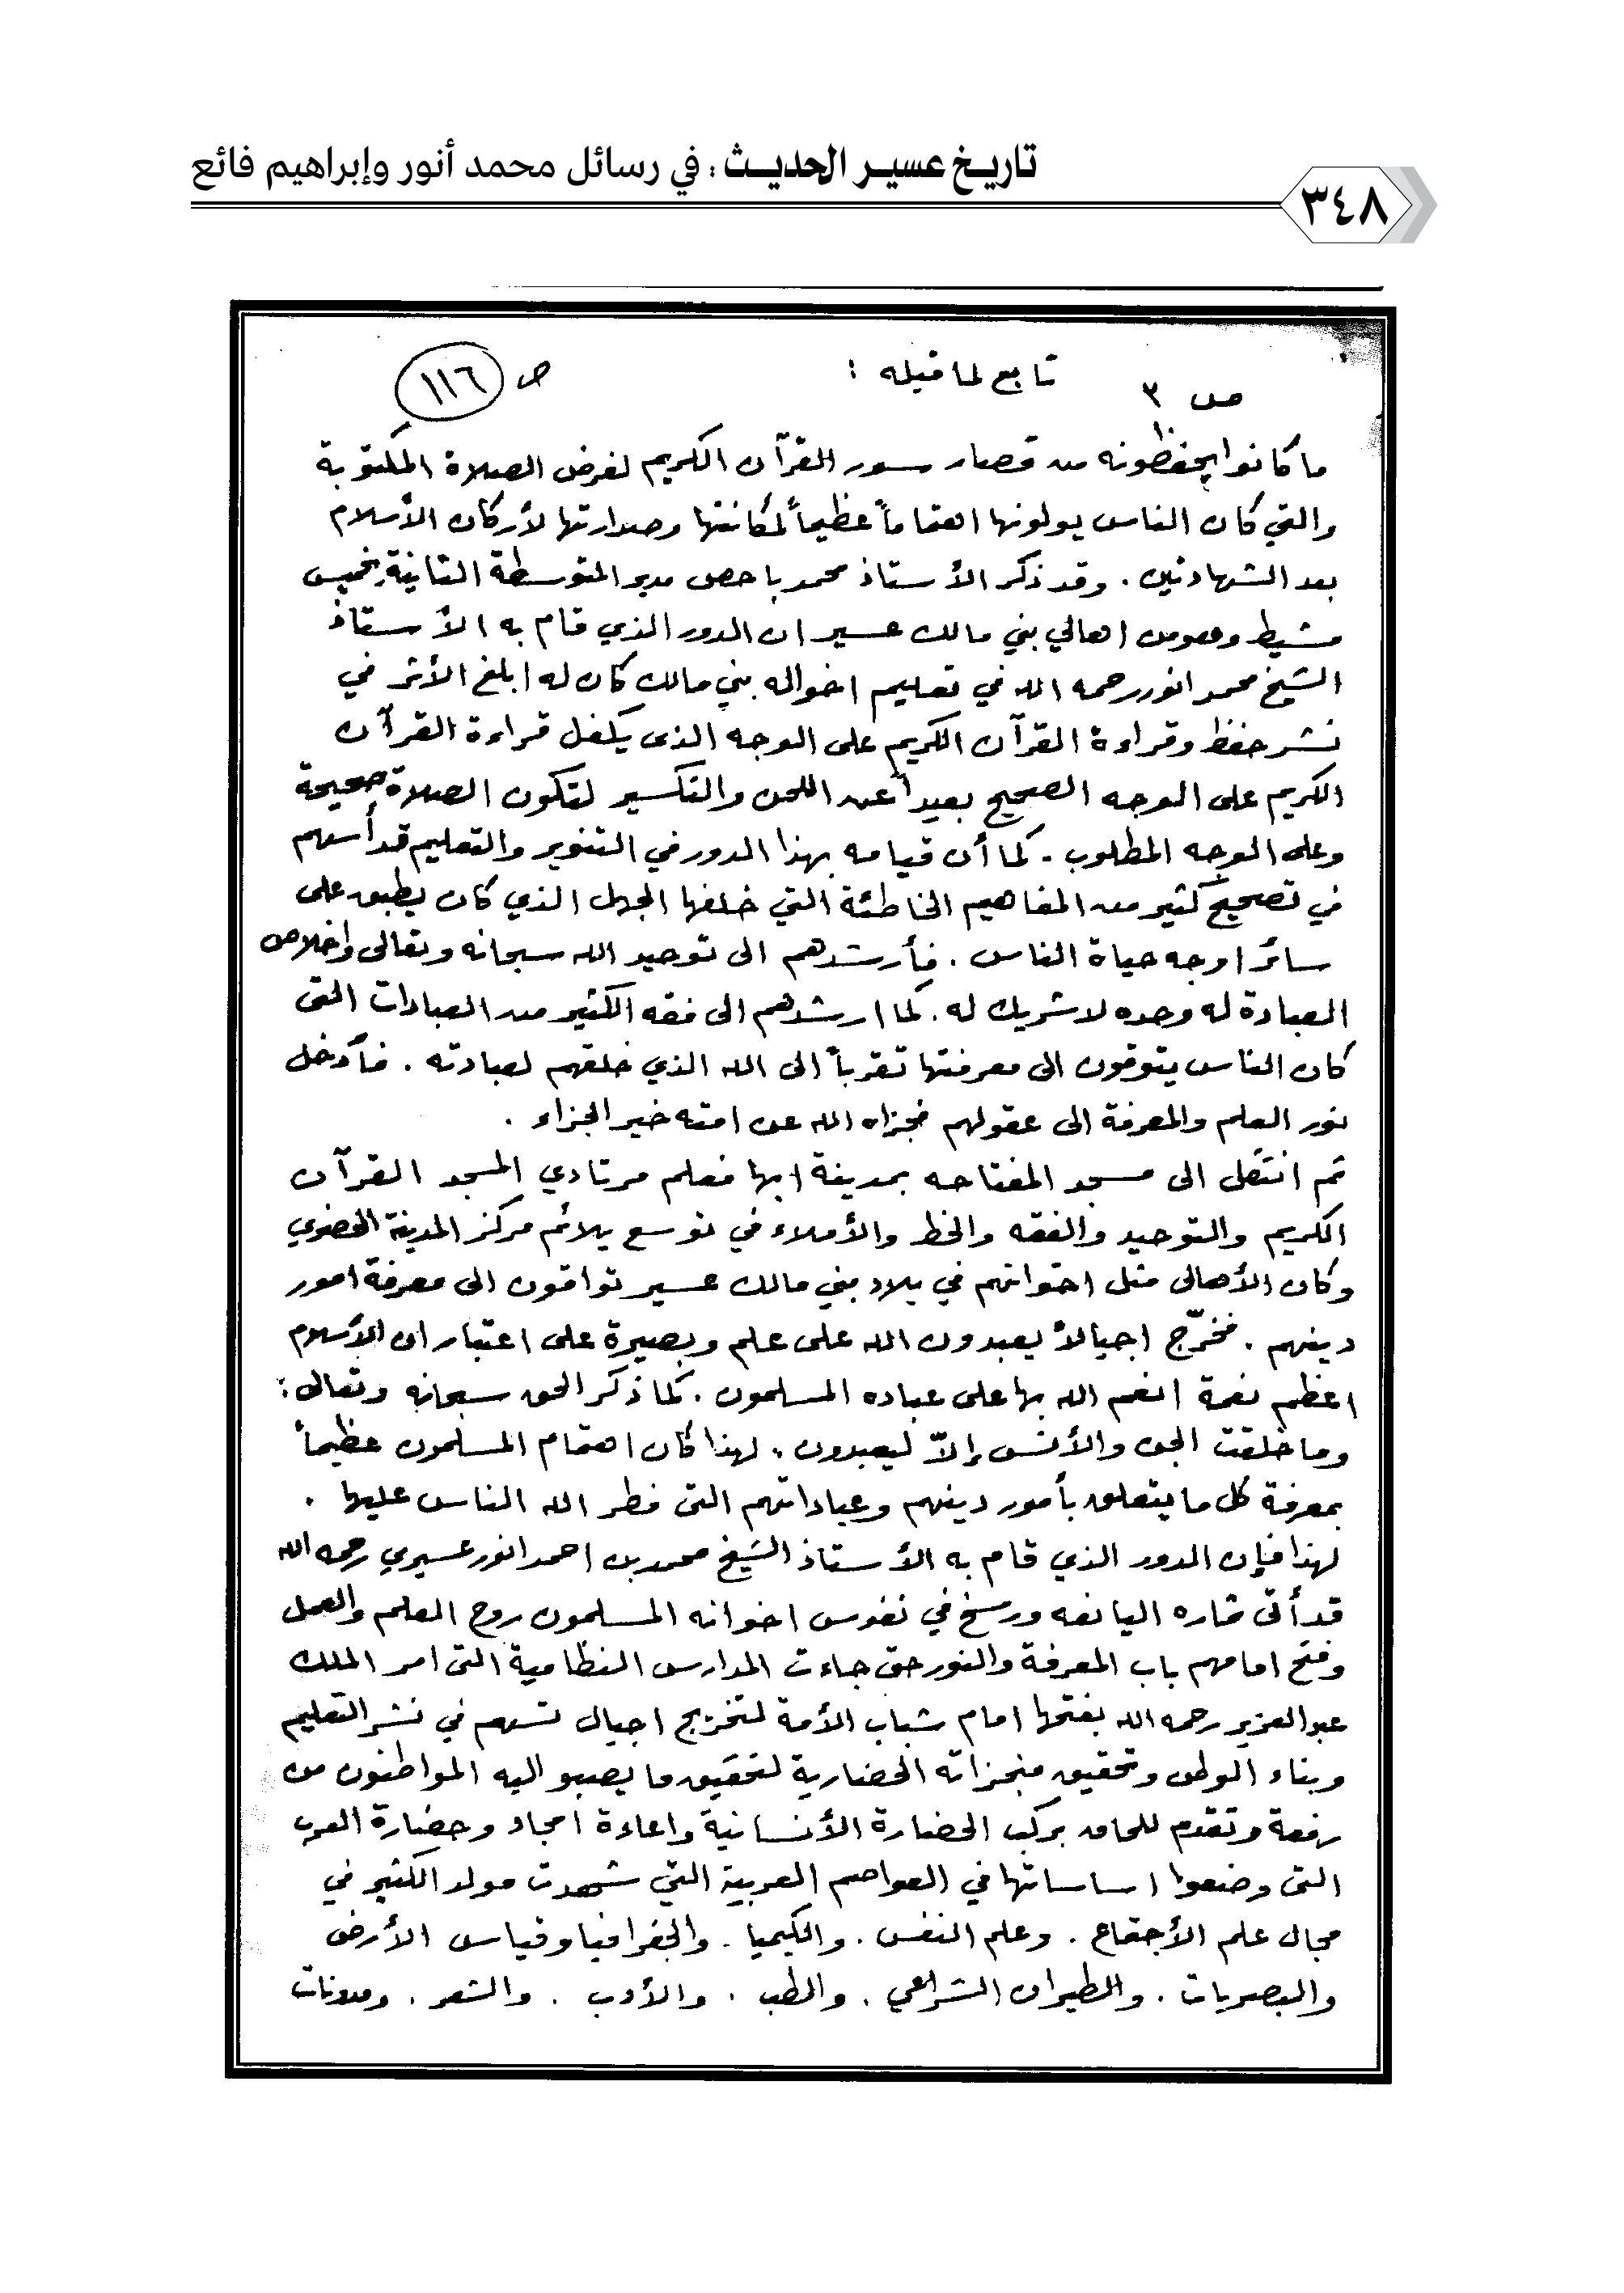 تاريخ عسير الحديث : في رسائل محمد أنور وإبراهيم فائع
٣٤٨
ص ٣ تابع لما قبله : ص ١١٦
ما كانوا يحفظونه من قصار سور القرآن الكريم لفرض الصلاة المكتوبة
والتي كان الناس يولونها اهتماماً عظيماً لمكانتها وصدارتها لأركان الأسلام
بعد الشهادتين . وقد ذكر الأستاذ محمد باحص مدير المتوسطة الثانية بخميس
مشيط وهو من اهالي بني مالك عسير ان الدور الذي قام به الأستاذ
الشيخ محمد انور رحمه الله في تعليم اخواله بني مالك كان له ابلغ الأثر في
نشر حفظ وقراءة القرآن الكريم على الوجه الذى يكفل قراءة القرآن
الكريم على الوجه الصحيح بعيداً عن اللحن والتكسير لتكون الصلاة صحيحة
وعلى الوجه المطلوب . كما أن قيامه بهذا الدور في التنوير والتعليم قد أسهم
في تصحيح كثير من المفاهيم الخاطئة التي خلفها الجهل الذي كان يطبق على
سائر اوجه حياة الناس . فأرشدهم الى توحيد الله سبحانه وتعالى واخلاص
العبادة له وحده لا شريك له . كما ارشدهم الى فقه الكثير من العبادات التى
كان الناس يتوقون الى معرفتها تقرباً الى الله الذي خلقهم لعبادته . فأدخل
نور العلم والمعرفة الى عقولهم فجزاه الله عن امته خير الجزاء .
ثم انتقل الى مسجد المفتاحه بمدينة ابها فعلم مرتادي المسجد القرآن
الكريم والتوحيد والفقه والخط والأملاء في توسع يلائم مركز المدينة الحضوي
وكان الأهالى مثل اخوانهم في بلاد بني مالك عسير تواقون الى معرفة امور
دينهم . فخرّج اجيالاً يعبدون الله على علم وبصيرة على اعتبار ان الأسلام
اعظم نعمة انعم الله بها على عباده المسلمون . كما ذكر الحق سبحانه وتعالى :
وما خلقت الجن والأنس إلاّ ليعبدون . لهذا كان اهتمام المسلمون عظيماً
بمعرفة كل ما يتعلق بأمور دينهم وعباداتهم التى فطر الله الناس عليها .
لهذا فإن الدور الذي قام به الأستاذ الشيخ محمد بن احمد انور عسيري رحمه الله
قد أتى ثماره اليانعه ورسخ في نفوس اخوانه المسلمون روح العلم والعمل
وفتح امامهم باب المعرفة والنور حتى جاءت المدارس النظامية التى امر الملك
عبدالعزيز رحمه الله بفتحها امام شباب الأمة لتخريج اجيال تسهم في نشر التعليم
وبناء الوطن وتحقيق منجزاته الحضارية لتحقيق ما يصبو اليه المواطنون من
رفعة وتقدم للحاق بركب الحضارة الأنسانية واعادة امجاد وحضارة العرب
التى وضعوا اساساتها في العواصم العربية التي شهدت مولد الكثير في
مجال علم الأجتماع . وعلم النفس . والكيميا . والجغرافيا وقياس الأرض
والبصريات . والطيران الشراعي . والطب . والأدب . والشعر . ومدونات